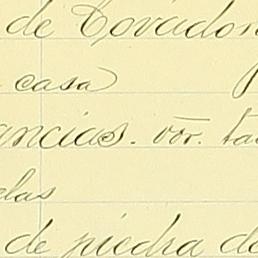 de Covadon
casa
ancias. vor. ta
las
de piedra de